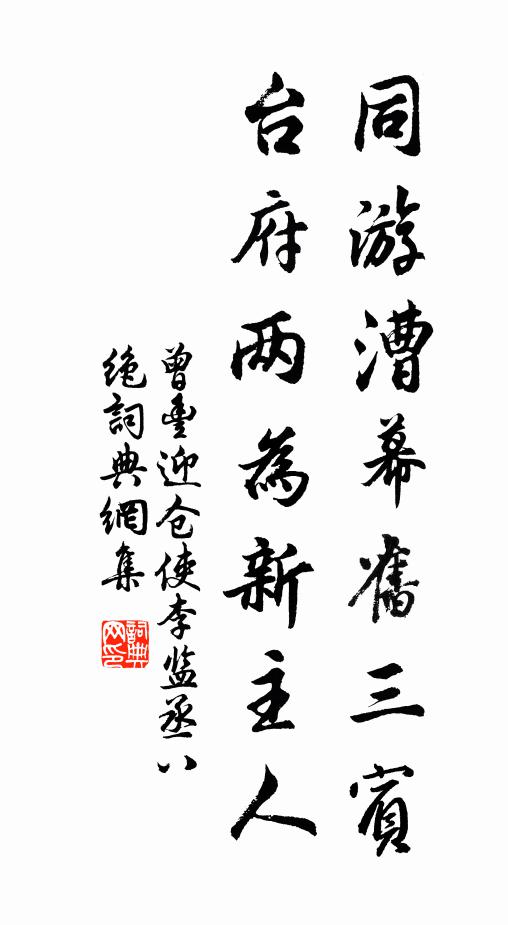 同游漕幕舊三賓
台府两為新主人
曾豊迎仓使李监丞八
绝詞典網集
詞典网印